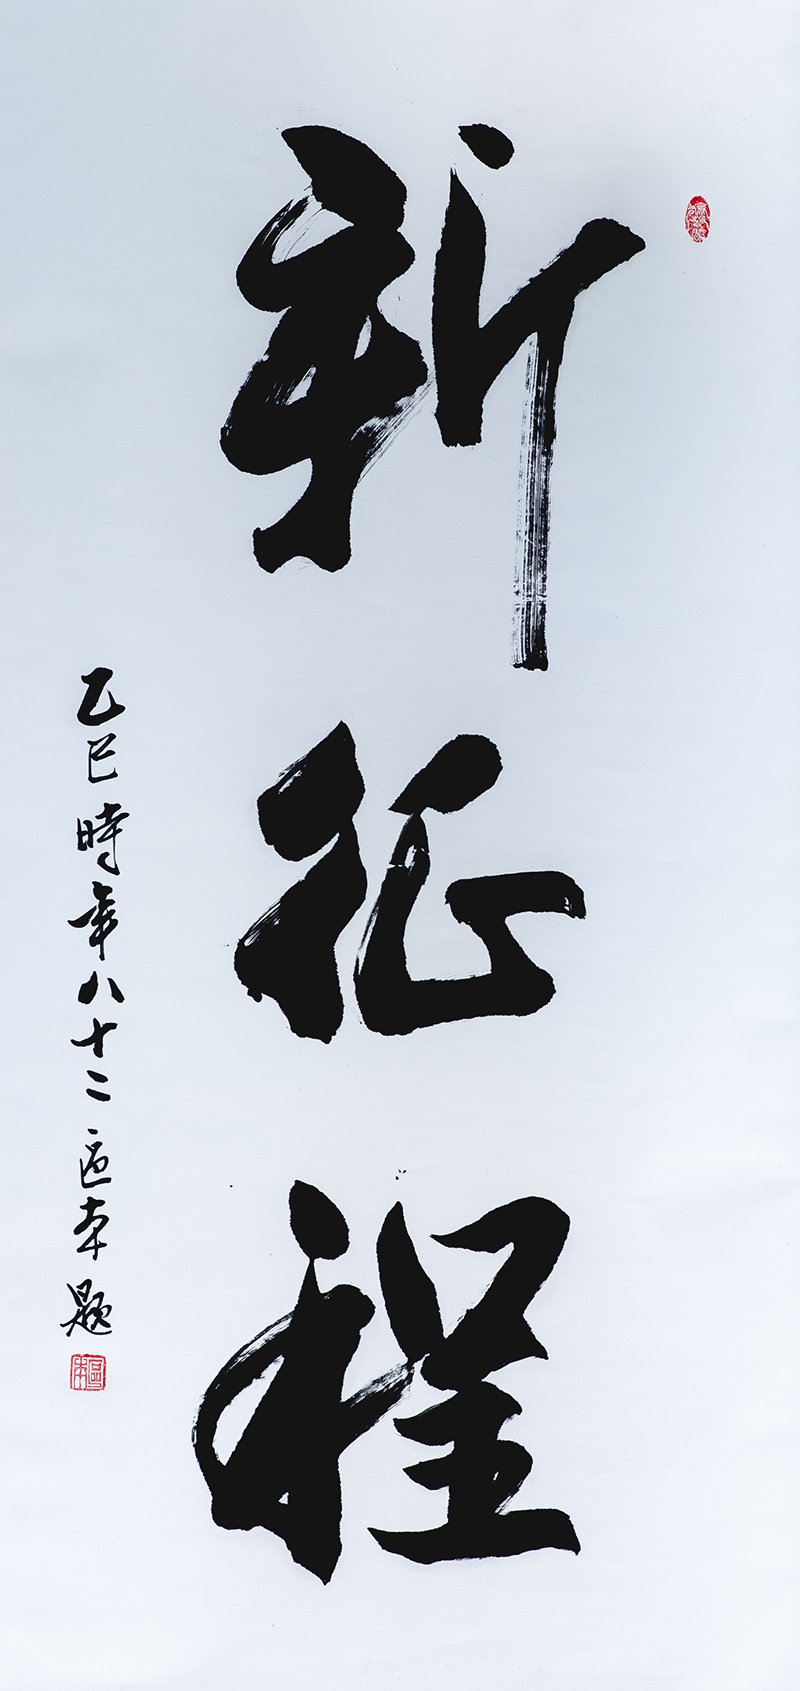 新征程
乙巳時年八十二區本題
區本